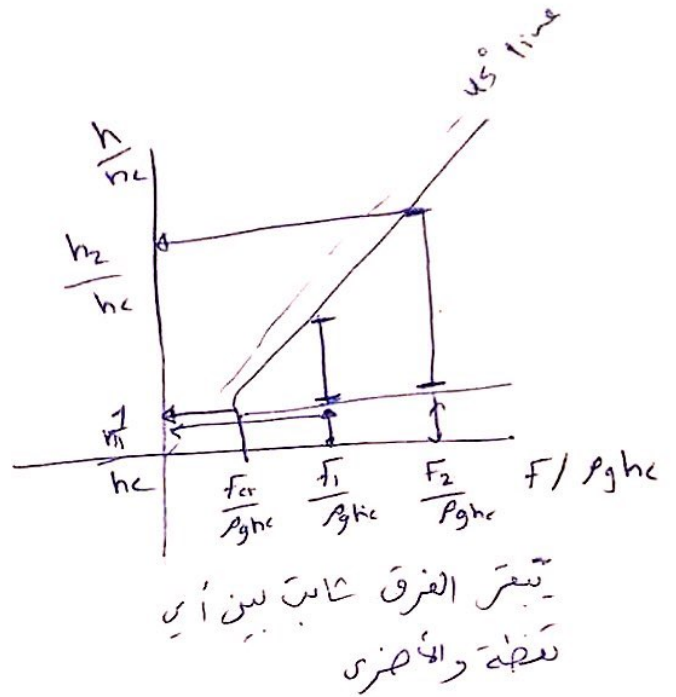 45° line
h/hc
h2/hc
1
h1/hc
Fcr/ρghc
F1/ρghc
F2/ρghc
F/ρghc
يبقى الفرق ثابت بين أي
نقطة والأخرى